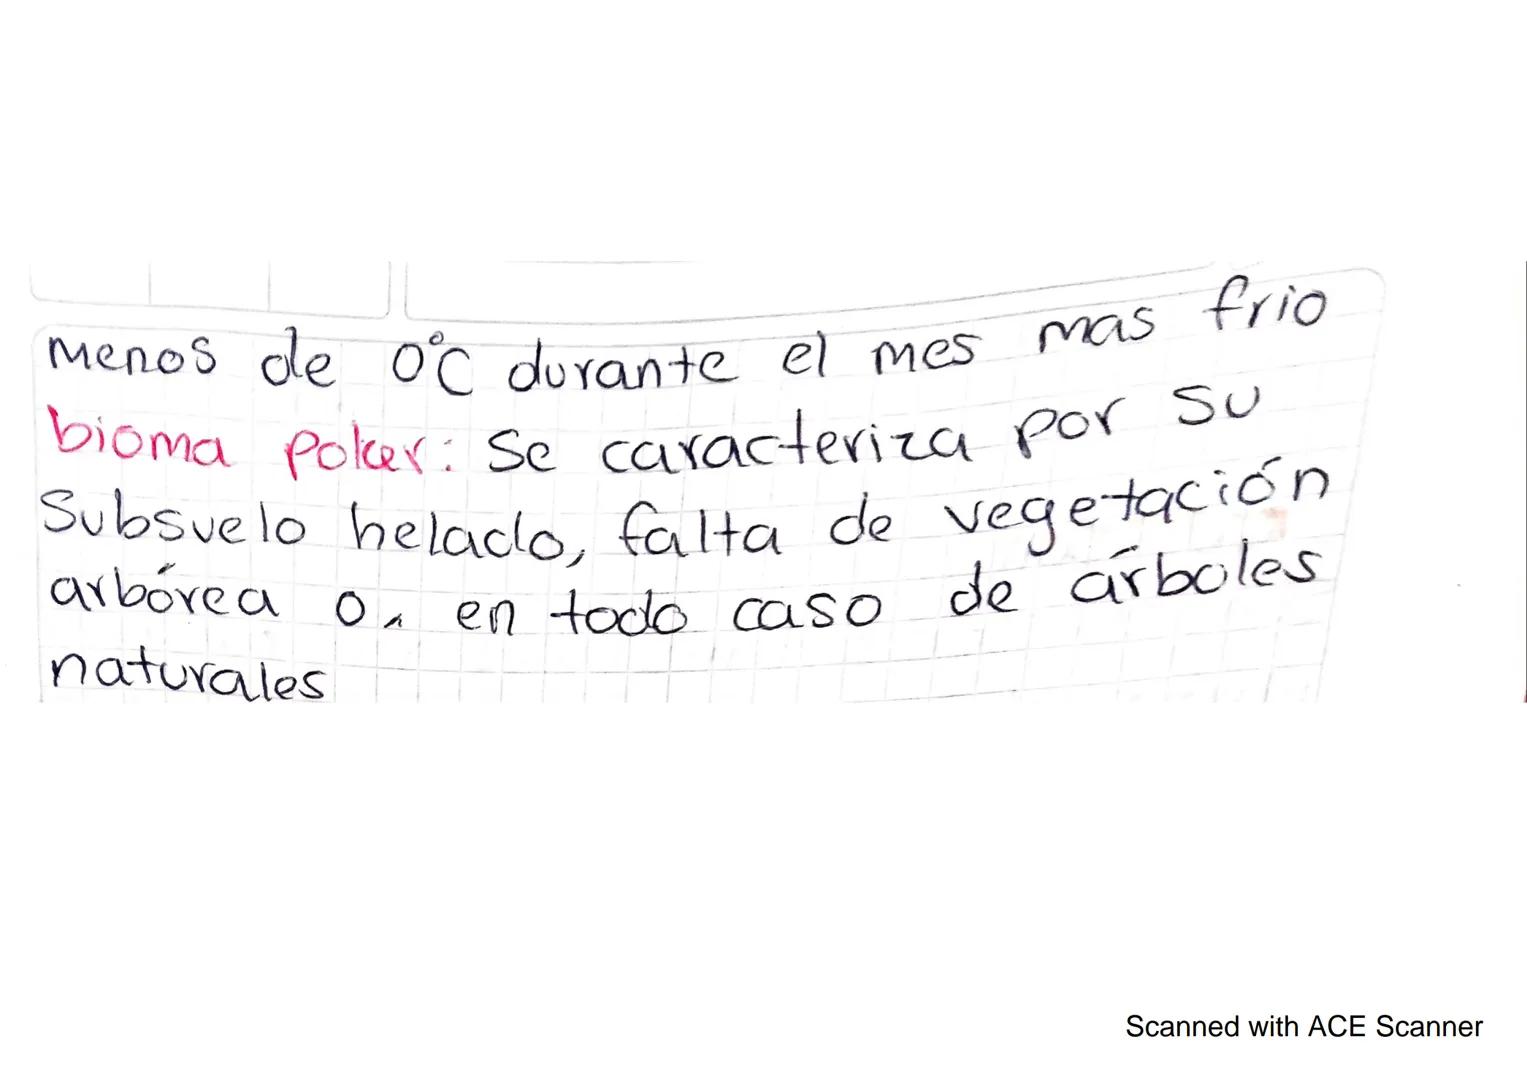 menos de 0°C durante el mes mas frio
bioma poker: Se caracteriza por su
Subsuelo helado, falta de vegetación
arbórea o, en todo caso de árboles
naturales
Scanned with ACE Scanner